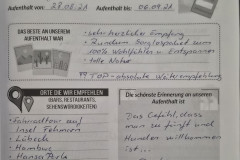 Aufenthalt von: 28.08.21 Aufenthalt bis: 06.09.21
DAS BESTE AN UNSEREM
AUFENTHALT WAR
- sehr herzlicher Empfang
- Rundum Sorglospaket zum
100% Wohlfühlen u. Entspannen
- tolle Natur
TOP - absolute Weiterempfehlung
ORTE DIE WIR EMPFEHLEN
(BARS, RESTAURANTS,
SEHENSWÜRDIGKEITEN)
- Fahrradtour auf
Insel Fehmarn
- Lübeck
- Hamburg
- Hansa Park
Die schönste Erinnerung an unseren
Aufenthalt ist
Das Gefühl, dass
man zu fünft und
Hunden willkommen
ist